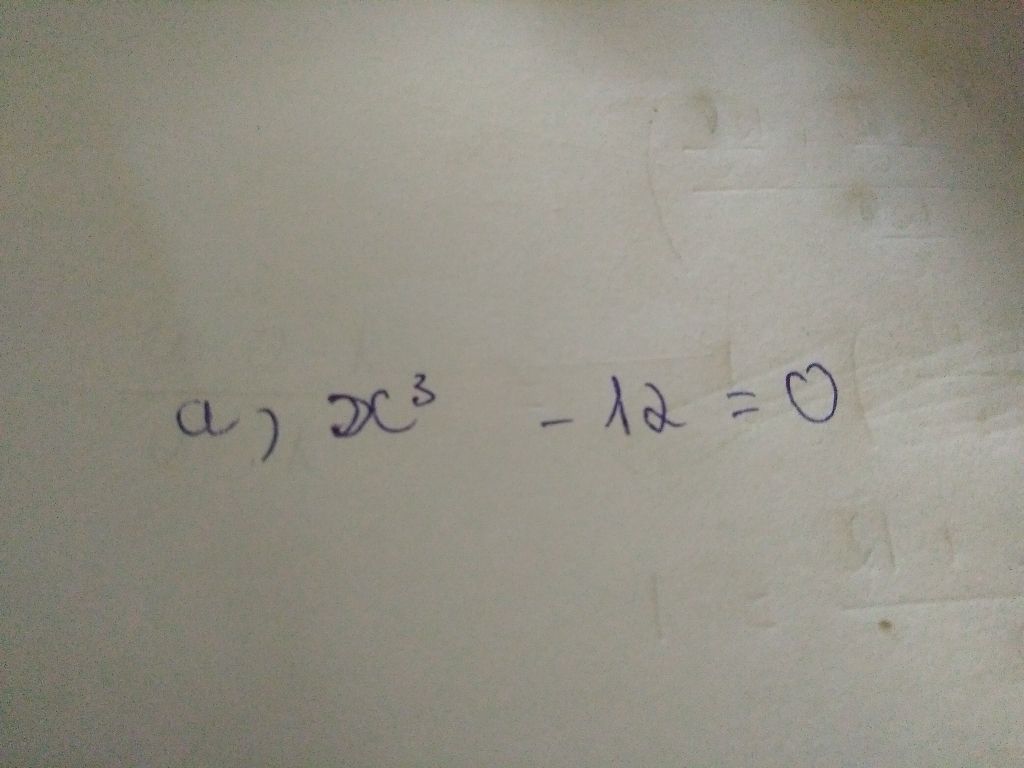 a, x³ - 12 = 0